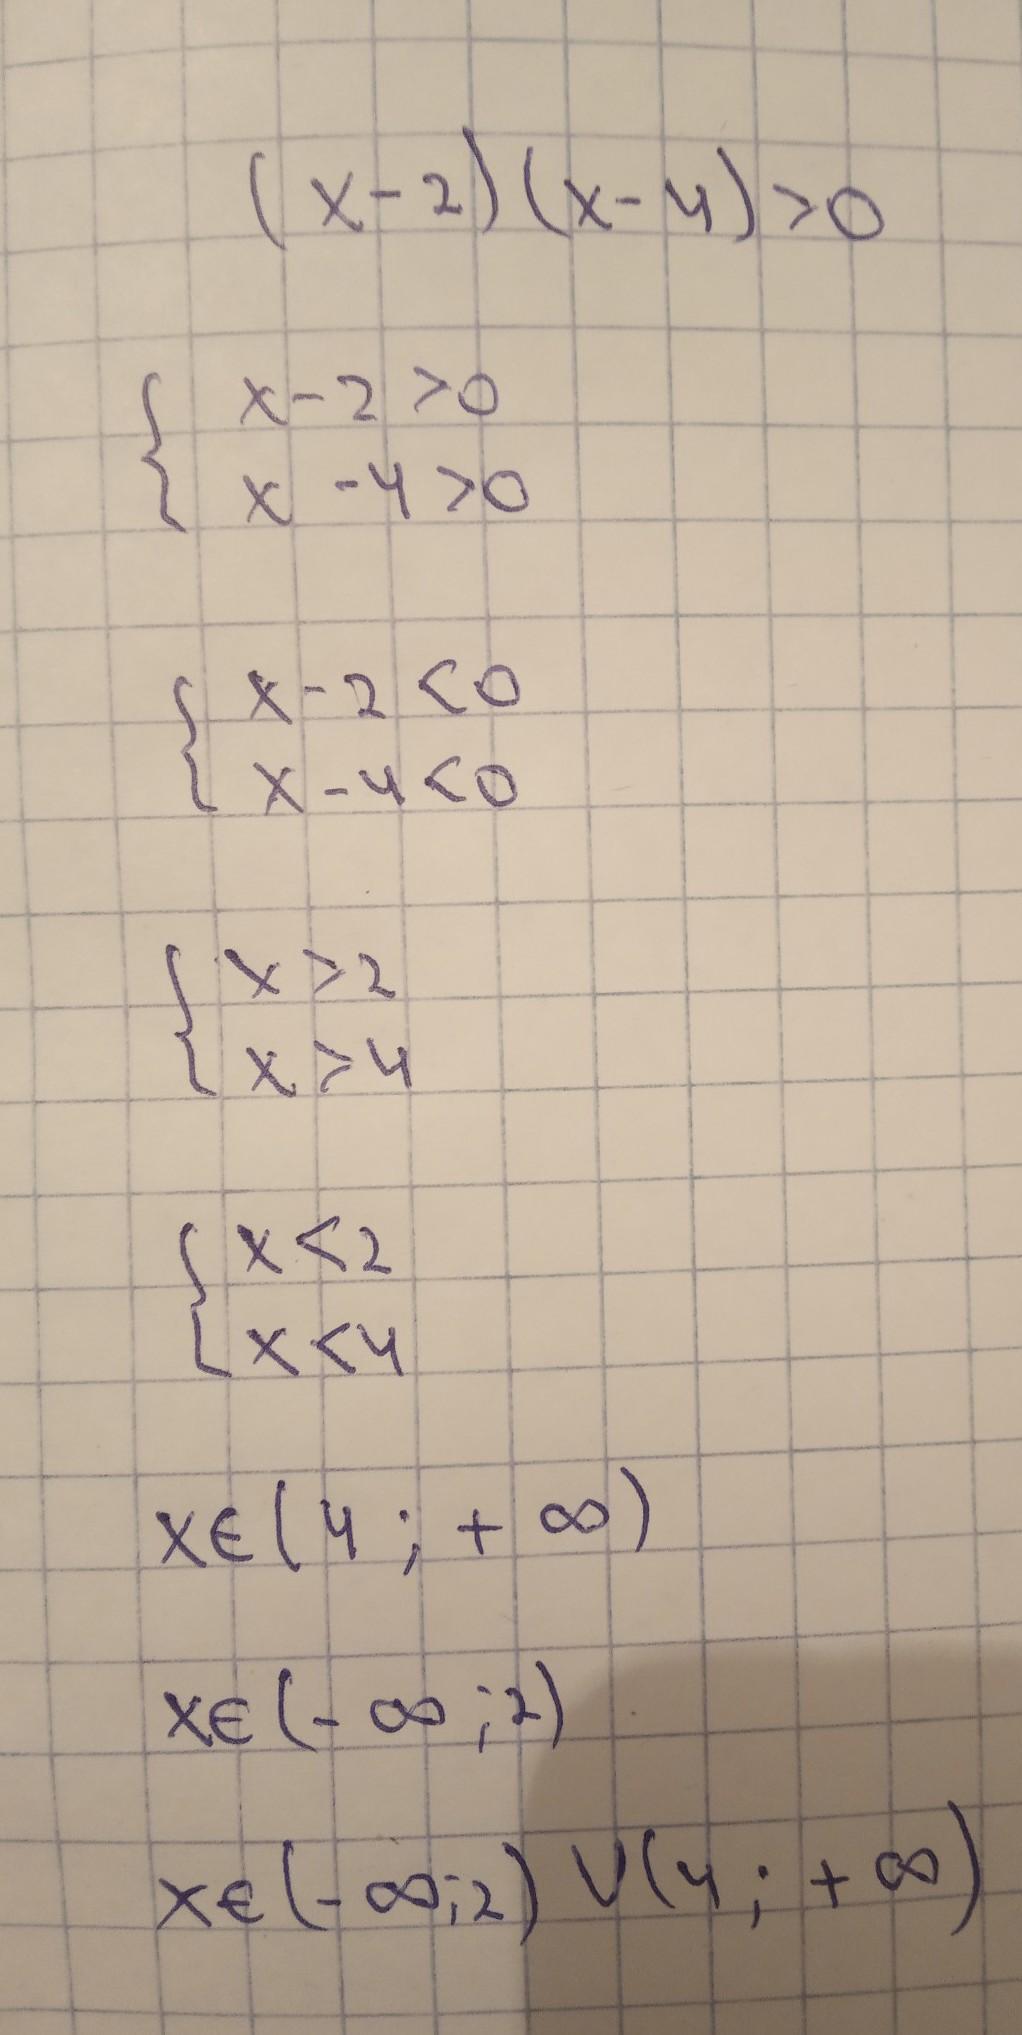 (x-2)(x-4)>0
{ x-2>0
x-4>0
{ x-2<0
x-4<0
{ x>2
x>4
{ x<2
x<4
x∈(4;+∞)
x∈(-∞;2)
x∈(-∞;2)∪(4;+∞)